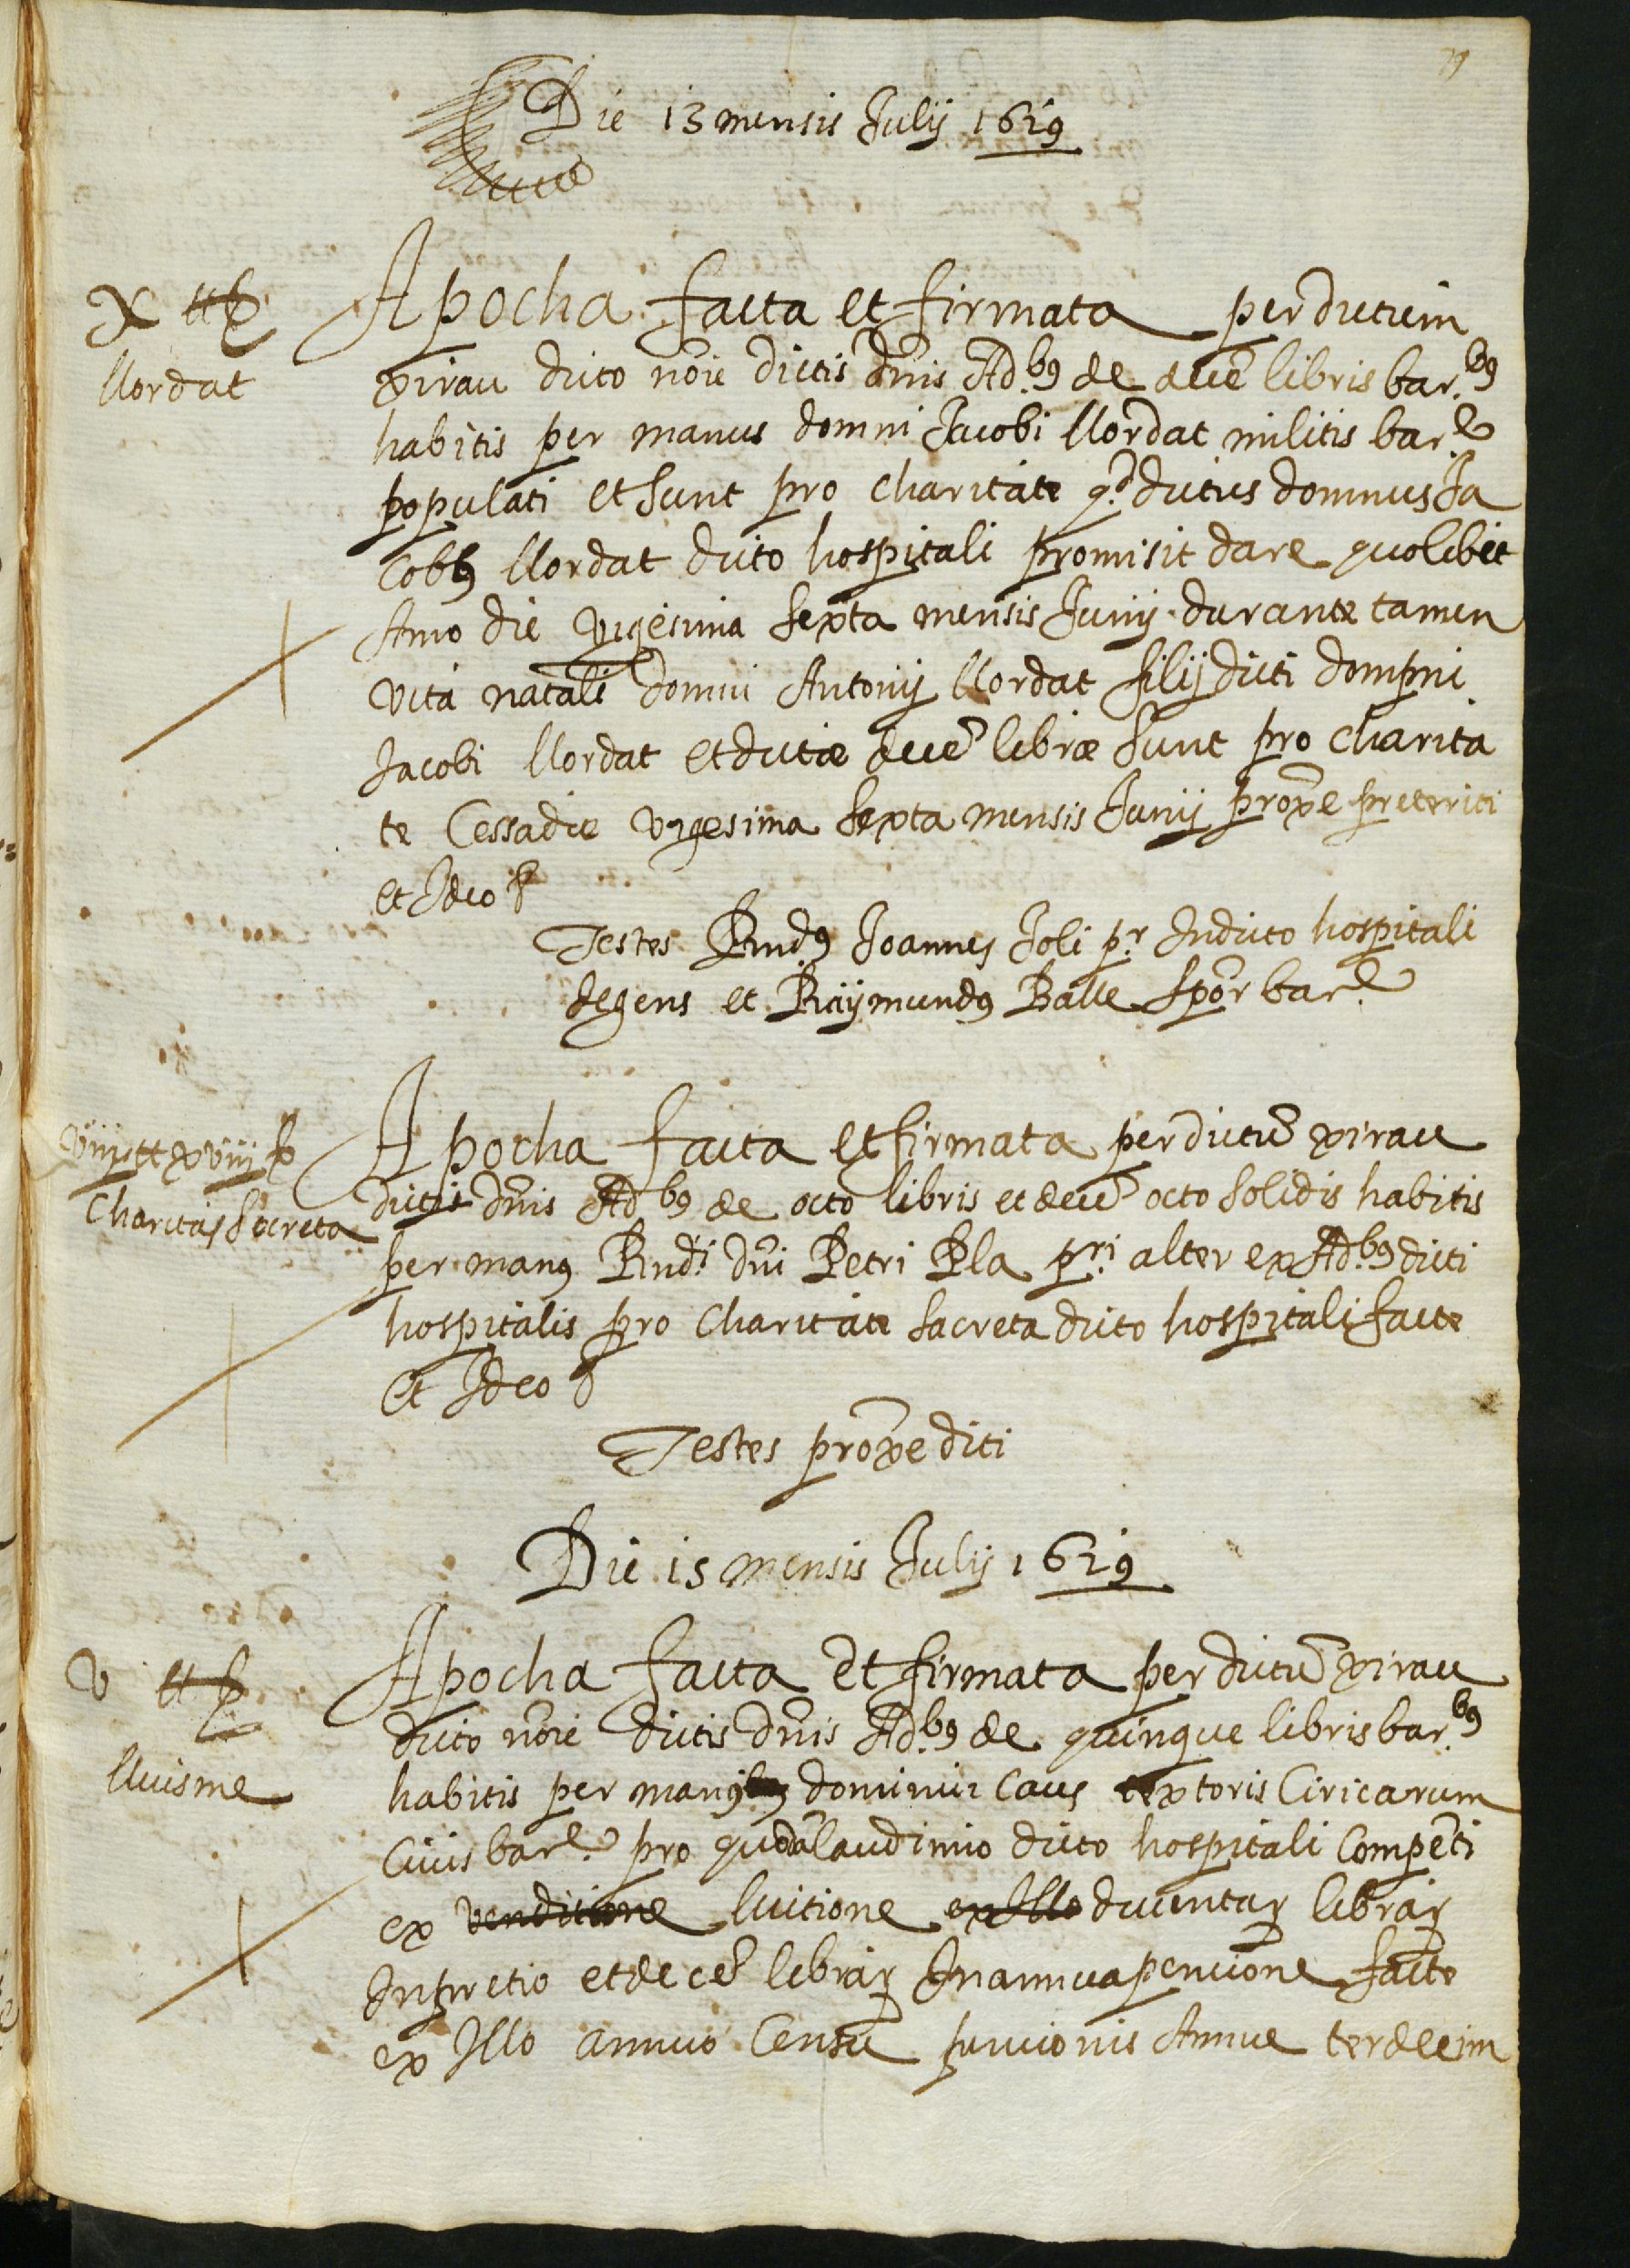 Die 13 mensis Julij 1629
X ℔
llordat
Apocha facta et firmata per dictum
xirau dicto noīe dictis dnīs Ad.bꝰ de decē libris bar.bꝰ
habitis per manus domni Jacobi llordat militis bar.e
populati et sunt pro charitate q.d dictus domnus Ja
cobꝰ llordat dicto hospitali promisit dare quolibet
Anno die vigesima sexta mensis Junij durante tamen
vita natali domni Antonij llordat filij dicti dompni
Jacobi llordat et dictæ decē libræ sunt pro charita
te Cessa die vigesima sexta mensis Junij proxē preteriti
et Ideo &
Testes Rnd.ꝰ Joannes Joli pr. In dicto hospitali
degens et Raymundꝰ Balle spōr bar.e
viij ℔ xviij ß
Charitas secreta
Apocha facta et firmata per dictū xirau
dictis dnīs Ad.bꝰ de octo libris et decē octo solidis habitis
per manꝰ Rnd.i dnī Petri Pla pr.i alter ex Ad.bꝰ dicti
hospitalis pro charitate sacreta dicto hospitali facte
et Ideo &
Testes proxē dicti
Die 15 mensis Julij 1629
V ℔
lluisme
Apocha facta et firmata per dictū xirau
dicto noīe dictis dnīs Ad.bꝰ de quinque libris bar.bꝰ
habitis per manꝰ dominici Caus textoris Ciricarum
Civis bar.e pro quodā laudimio dicto hospitali Competēti
ex venditione luitione ex Illo ducentaꝝ libraꝝ
In pretio et decē libraꝝ In annua pencione facte
ex Illo annuo Censu pencionis Annue terdecim